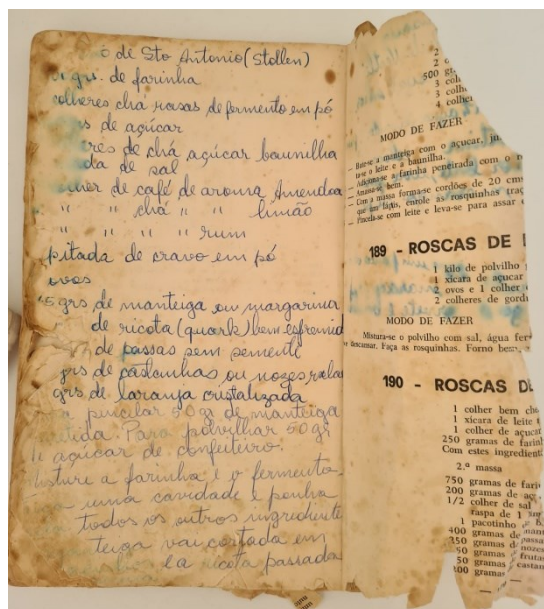 de Sto Antonio (Stollen)
grs. de farinha
colheres chá rasas de fermento em pó
s de açúcar
res de chá açúcar baunilha
da de sal
her de café de aroma Amendoa
" " chá " " limão
" " " " rum
pitada de cravo em pó
ovos
5 grs de manteiga ou margarina
de ricota (quark) bem espremid
de passas sem semente
grs de castanhas ou nozes
grs de laranja cristalizada
pincelar 50 gr de manteiga
Para polvilhar 50 grs
açúcar de confeiteiro.
isture a farinha e o fermento
uma cavidade e ponha
todos os outros ingrediente
teiga vai cortada em
cota passada
2
2
500 gr
3 colh
3 colh
4 colher
MODO DE FAZER
— Bate-se a manteiga com o açúcar,
o leite e a baunilha.
— Adiciona-se a farinha peneirada com o
— Amassa-se bem.
— Com a massa forma-se cordões de 20 cm
que um lápis, enrole as rosquinhas
— Pincela-se com leite e leva-se para assar
189 - ROSCAS DE
1 kilo de polvilho
1 xicara de açucar
2 ovos e 1 colher
2 colheres de gord
MODO DE FAZER
Mistura-se o polvilho com sal, água
descansar. Faça as rosquinhas. Forno
190 - ROSCAS
1 colher bem
1 xicara de leite
1 colher de açucar
250 gramas de farinh
Com estes ingredient
2.ª massa
750 gramas de
200 gramas de
1/2 colher de sal
raspa de 1
1 pacotinho
400 gramas
350 gramas
50 gramas
50 gramas
100 gramas